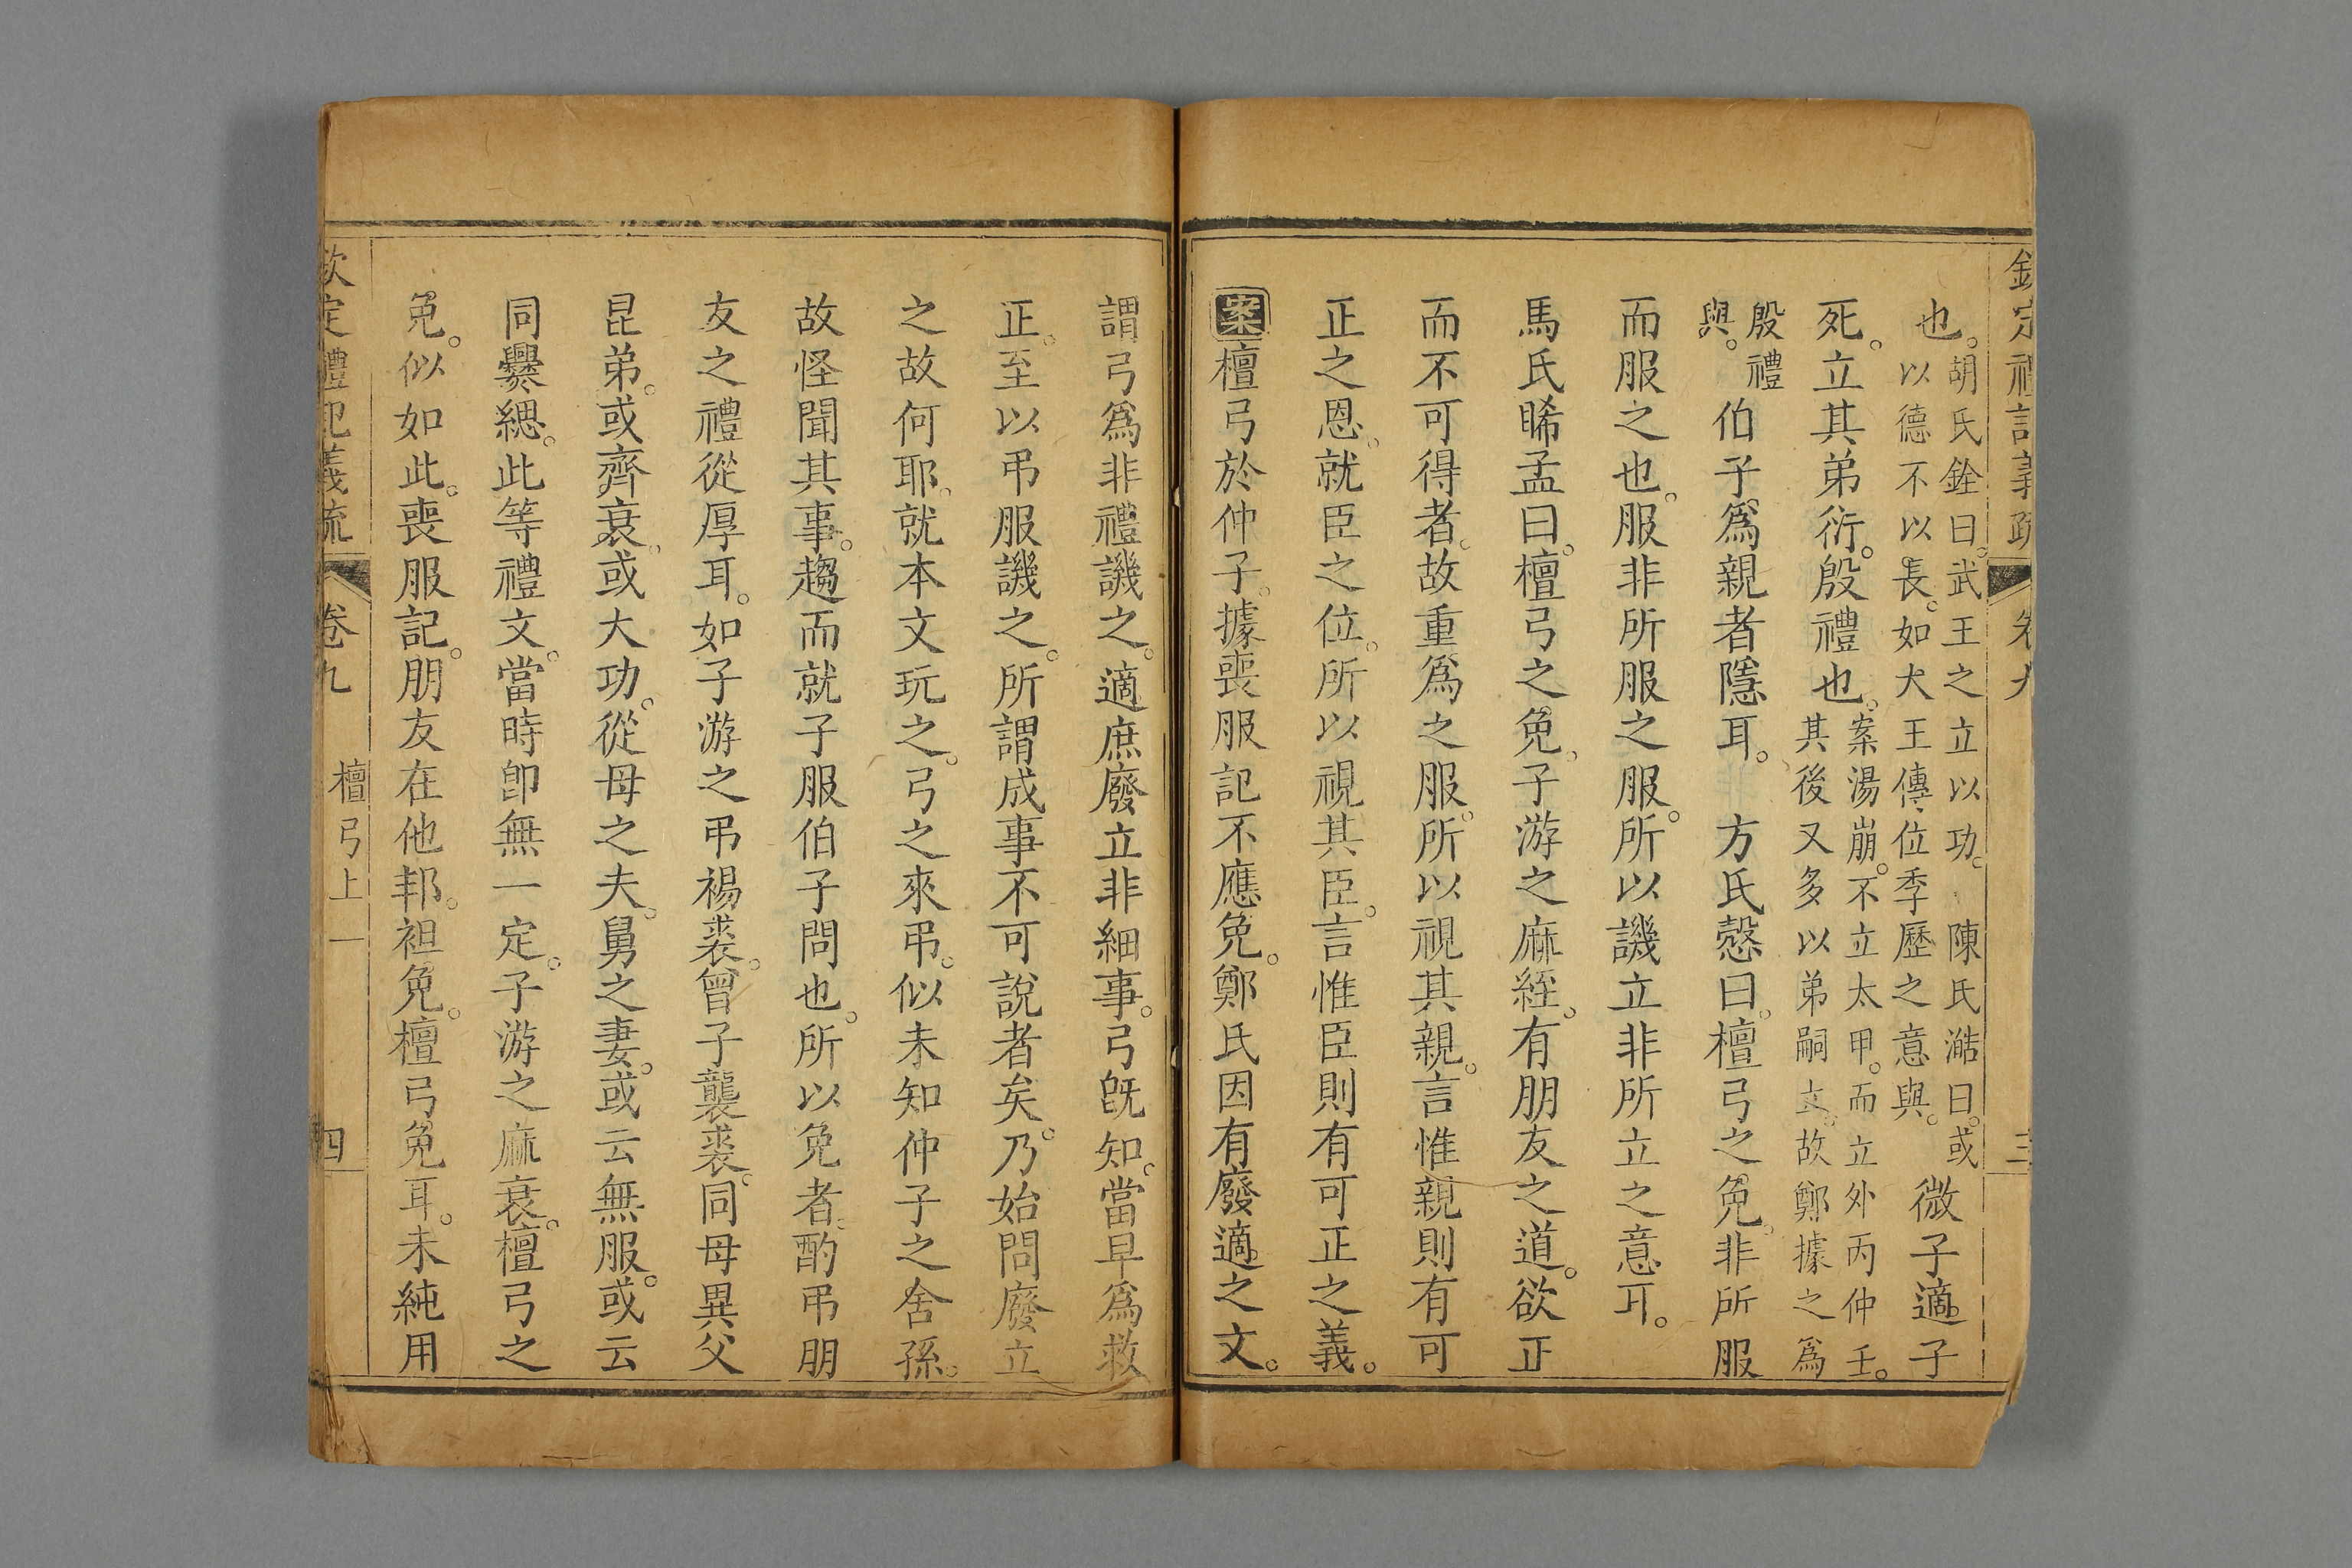 欽定禮記義疏 卷九 三
也。胡氏銓曰。武王之立以功。陳氏澔曰。或
以德不以長。如大王傳位季歷之意與。微子適子
死。立其弟衍。殷禮也。案湯崩。不立太甲。而立外丙仲壬。
其後又多以弟嗣立。故鄭據之為
殷禮
與。伯子為親者隱耳。 方氏慤曰。檀弓之免。非所服
而服之也。服非所服之服。所以譏立非所立之意耳。
馬氏睎孟曰。檀弓之免。子游之麻絰。有朋友之道。欲正
而不可得者。故重為之服。所以視其親。言惟親則有可
正之恩。就臣之位。所以視其臣。言惟臣則有可正之義。
案檀弓於仲子。據喪服記不應免。鄭氏因有廢適之文。
謂弓為非禮譏之。適庶廢立非細事。弓既知。當早為救
正。至以弔服譏之。所謂成事不可說者矣。乃始問廢立
之故何耶。就本文玩之。弓之來弔。似未知仲子之舍孫。
故怪聞其事。趨而就子服伯子問也。所以免者。酌弔朋
友之禮從厚耳。如子游之弔裼裘。曾子襲裘。同母異父
昆弟。或齊衰。或大功。從母之夫。舅之妻。或云無服。或云
同爨緦。此等禮文。當時卽無一定。子游之麻衰。檀弓之
免。似如此。喪服記。朋友在他邦。袒免。檀弓免耳。未純用
欽定禮記義疏 卷九 檀弓上一 四